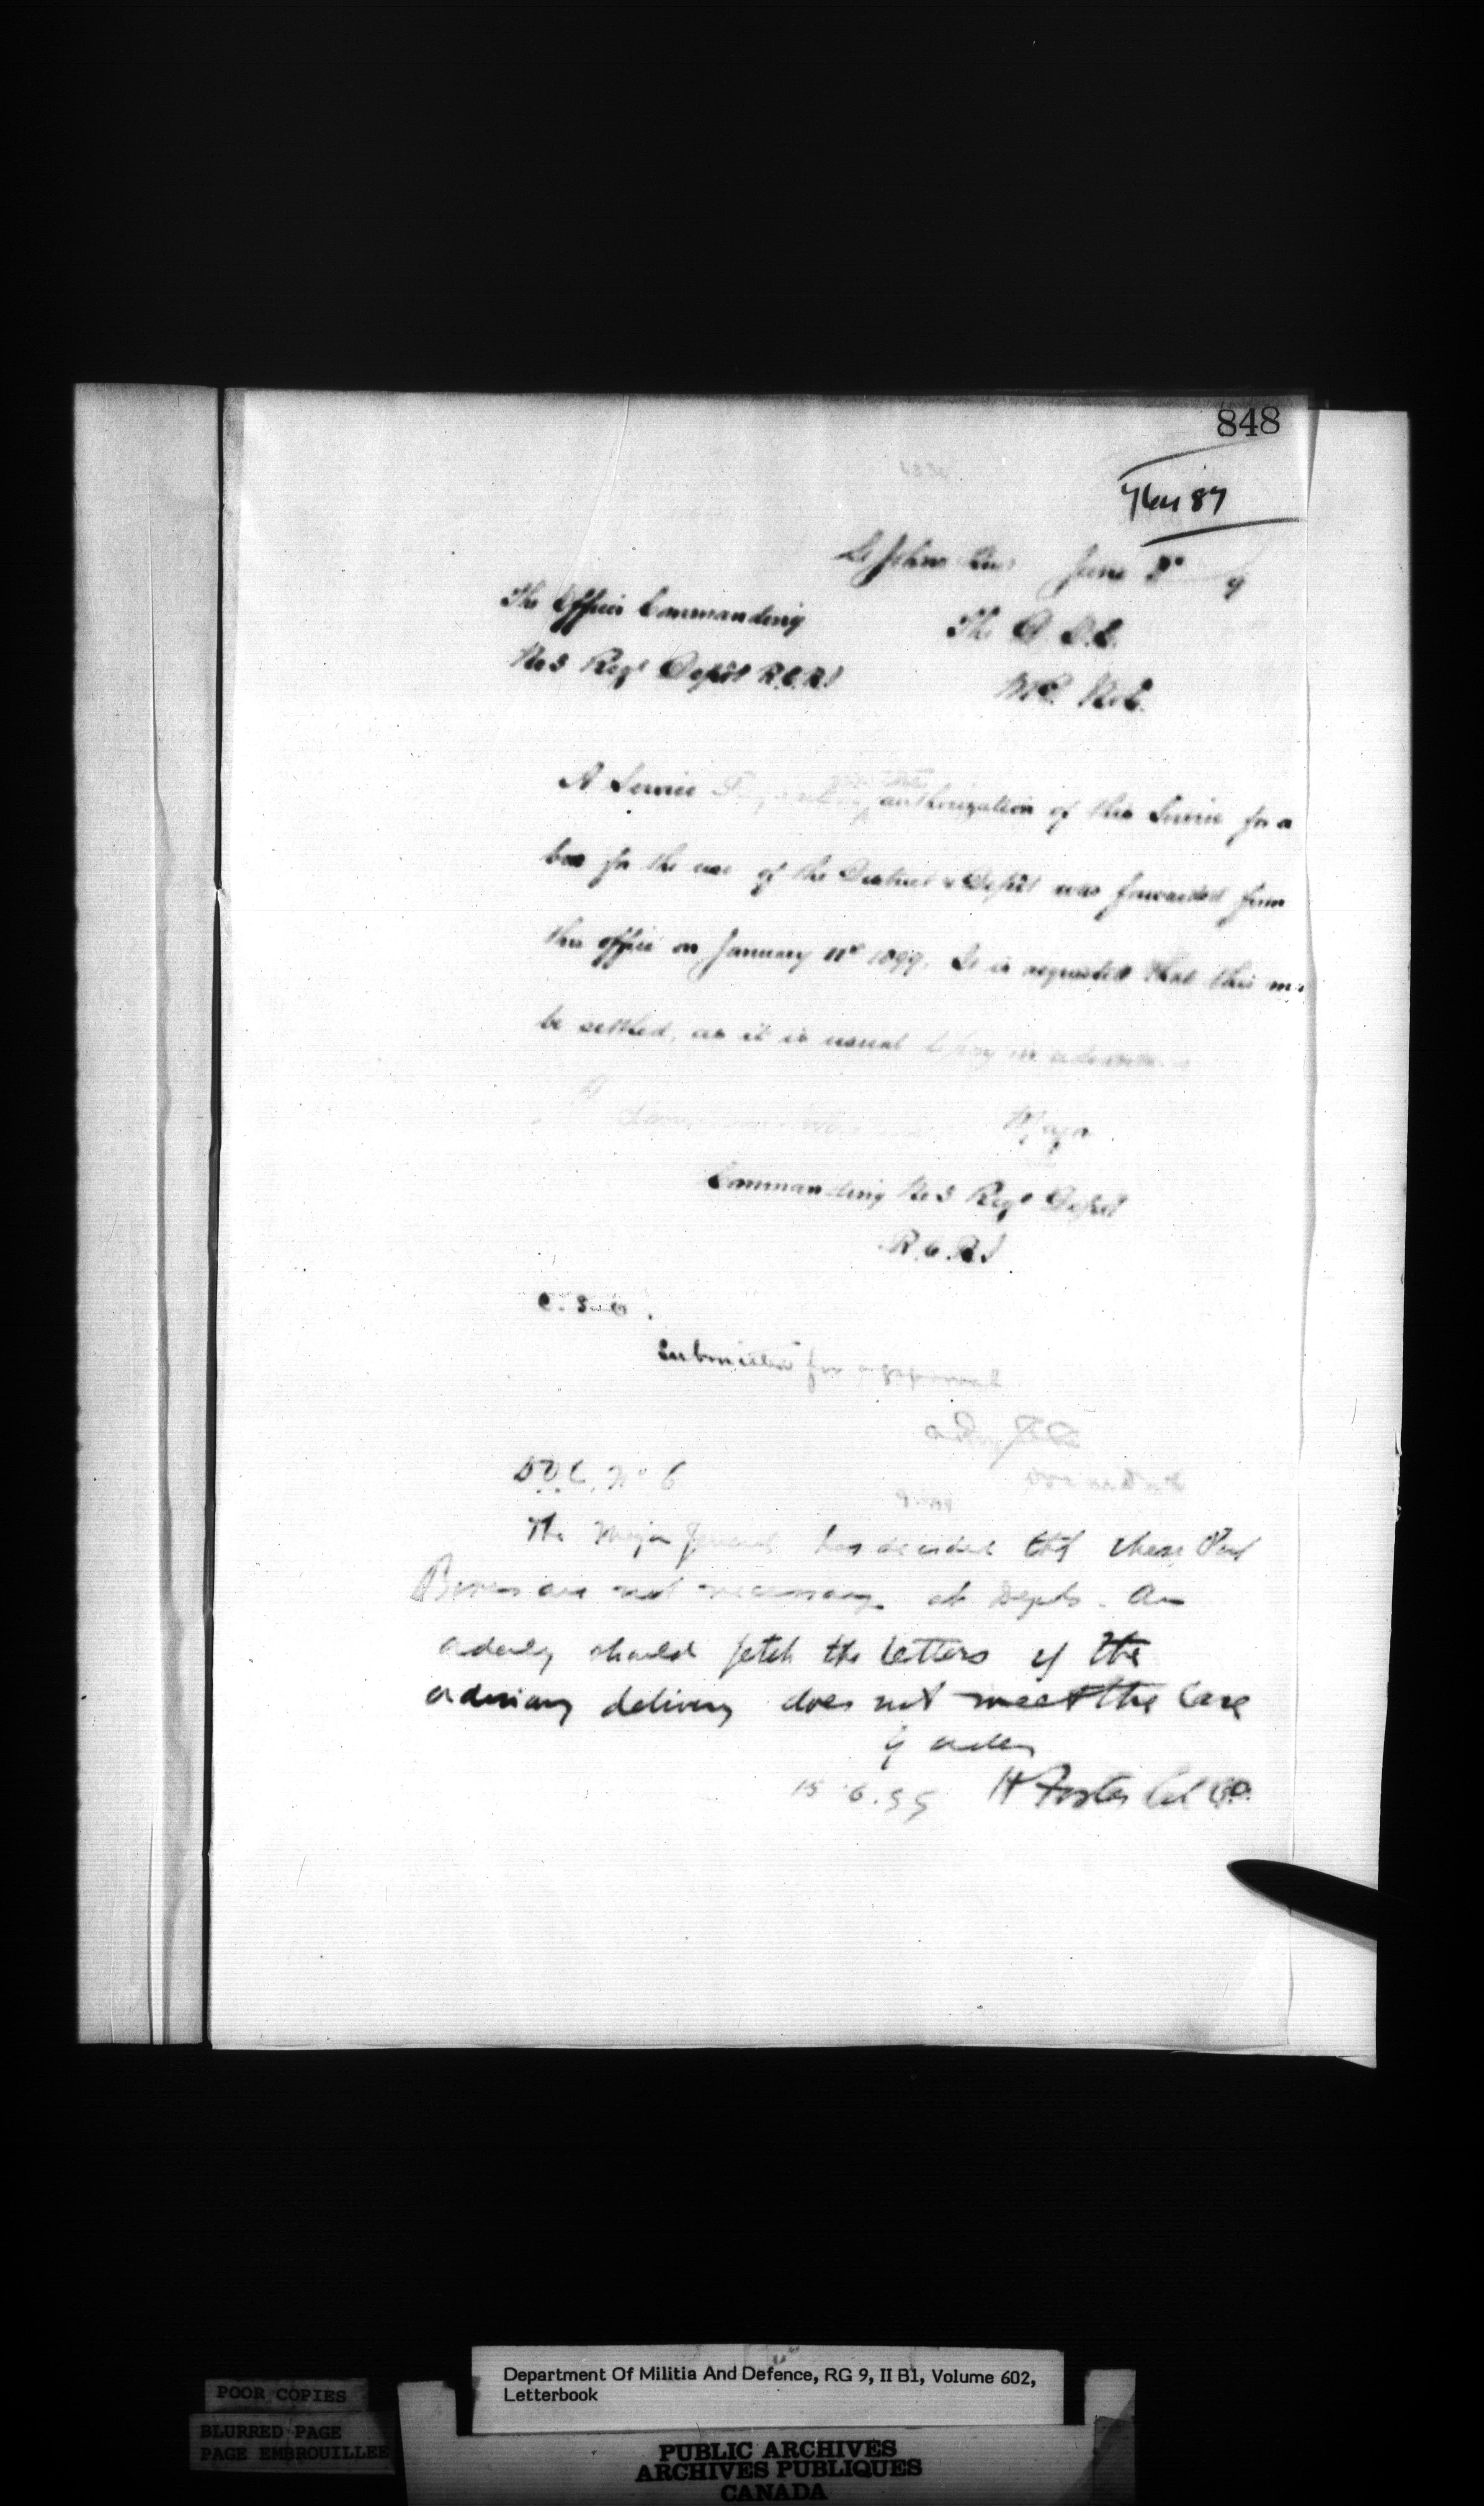 848
St Johns Que June
The Officer Commanding
No 3 Regl Depôt R.C.R.I
The D.O.C.
M.D. No 6.
A Service authorization of this Service for a
box for the use of the District & Depôt was forwarded from
this office on January 11th 1899. It is requested that this
be settled, as it is usual to pay in advance
Major
Commanding No 3 Regl Depôt
R.C.R.I
C.S.O.
Submitted for approval
D.O.C. No 6
The Major General has decided that these Post
Boxes are not necessary at Depots. An
orderly should fetch the letters if the
ordinary delivery does not meet the case
By order
15.6.99 H Foster Col
Department Of Militia And Defence, RG 9, II B1, Volume 602,
Letterbook
POOR COPIES
BLURRED PAGE
PAGE EMBROUILLEE
PUBLIC ARCHIVES
ARCHIVES PUBLIQUES
CANADA